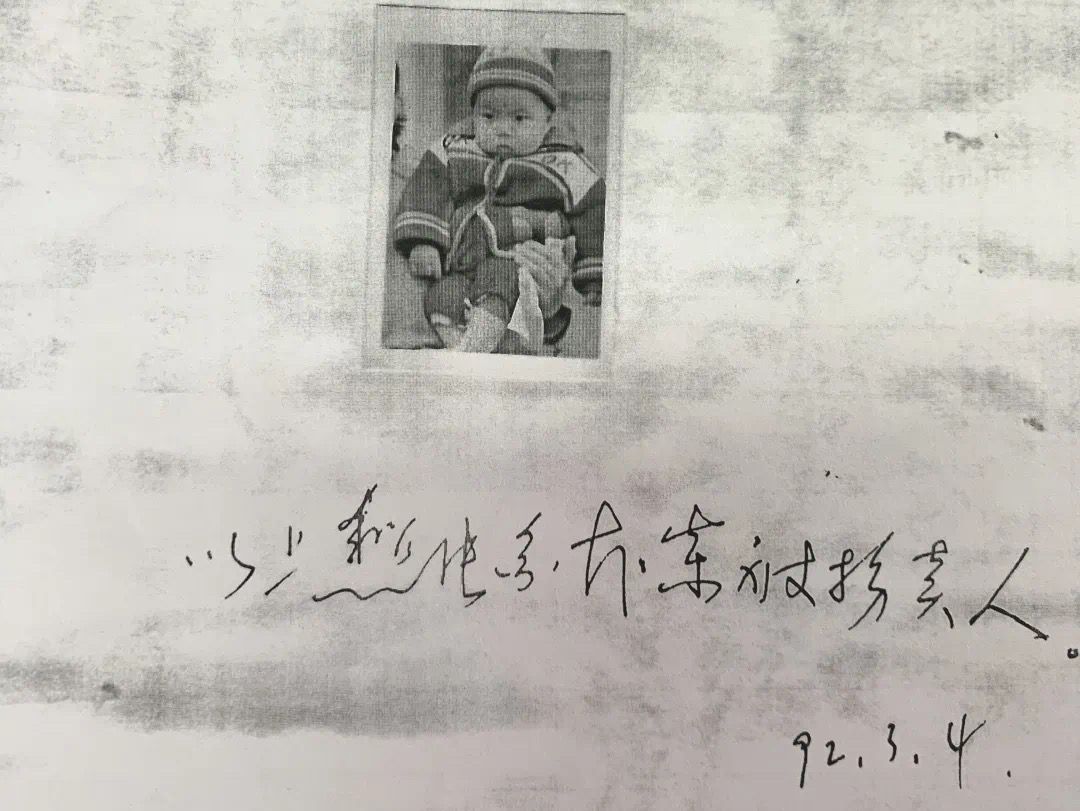 以上张系本案被拐卖人。
92.3.4.